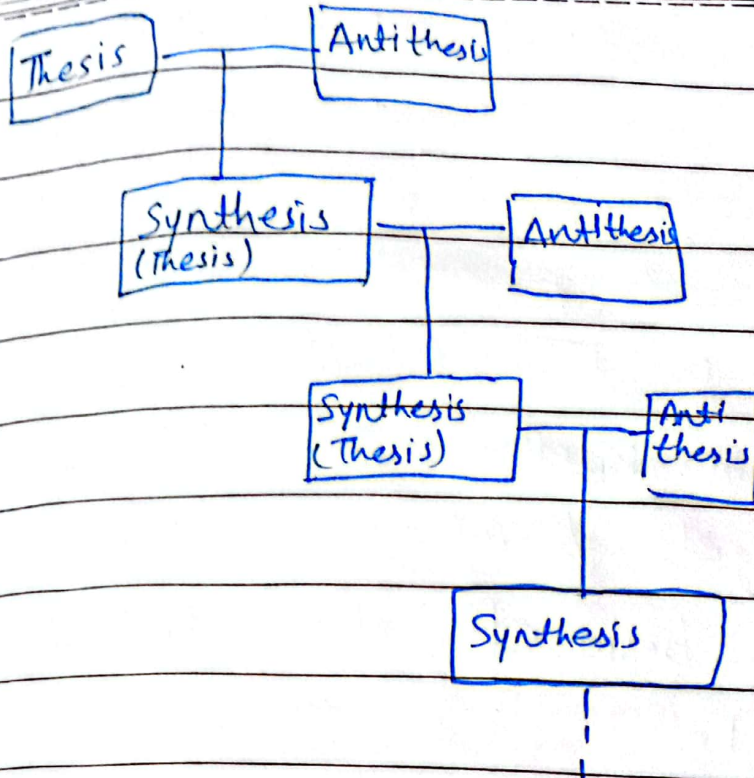 Thesis
Antithesis
Synthesis
(Thesis)
Antithesis
Synthesis
(Thesis)
Anti
thesis
Synthesis